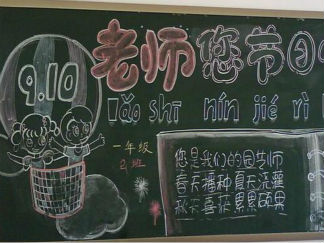 9.10
老师您节日
lǎo shī nín jié rì
一年级
2班
您是我们的园艺师
春天播种夏天浇灌
秋天喜获累累硕果